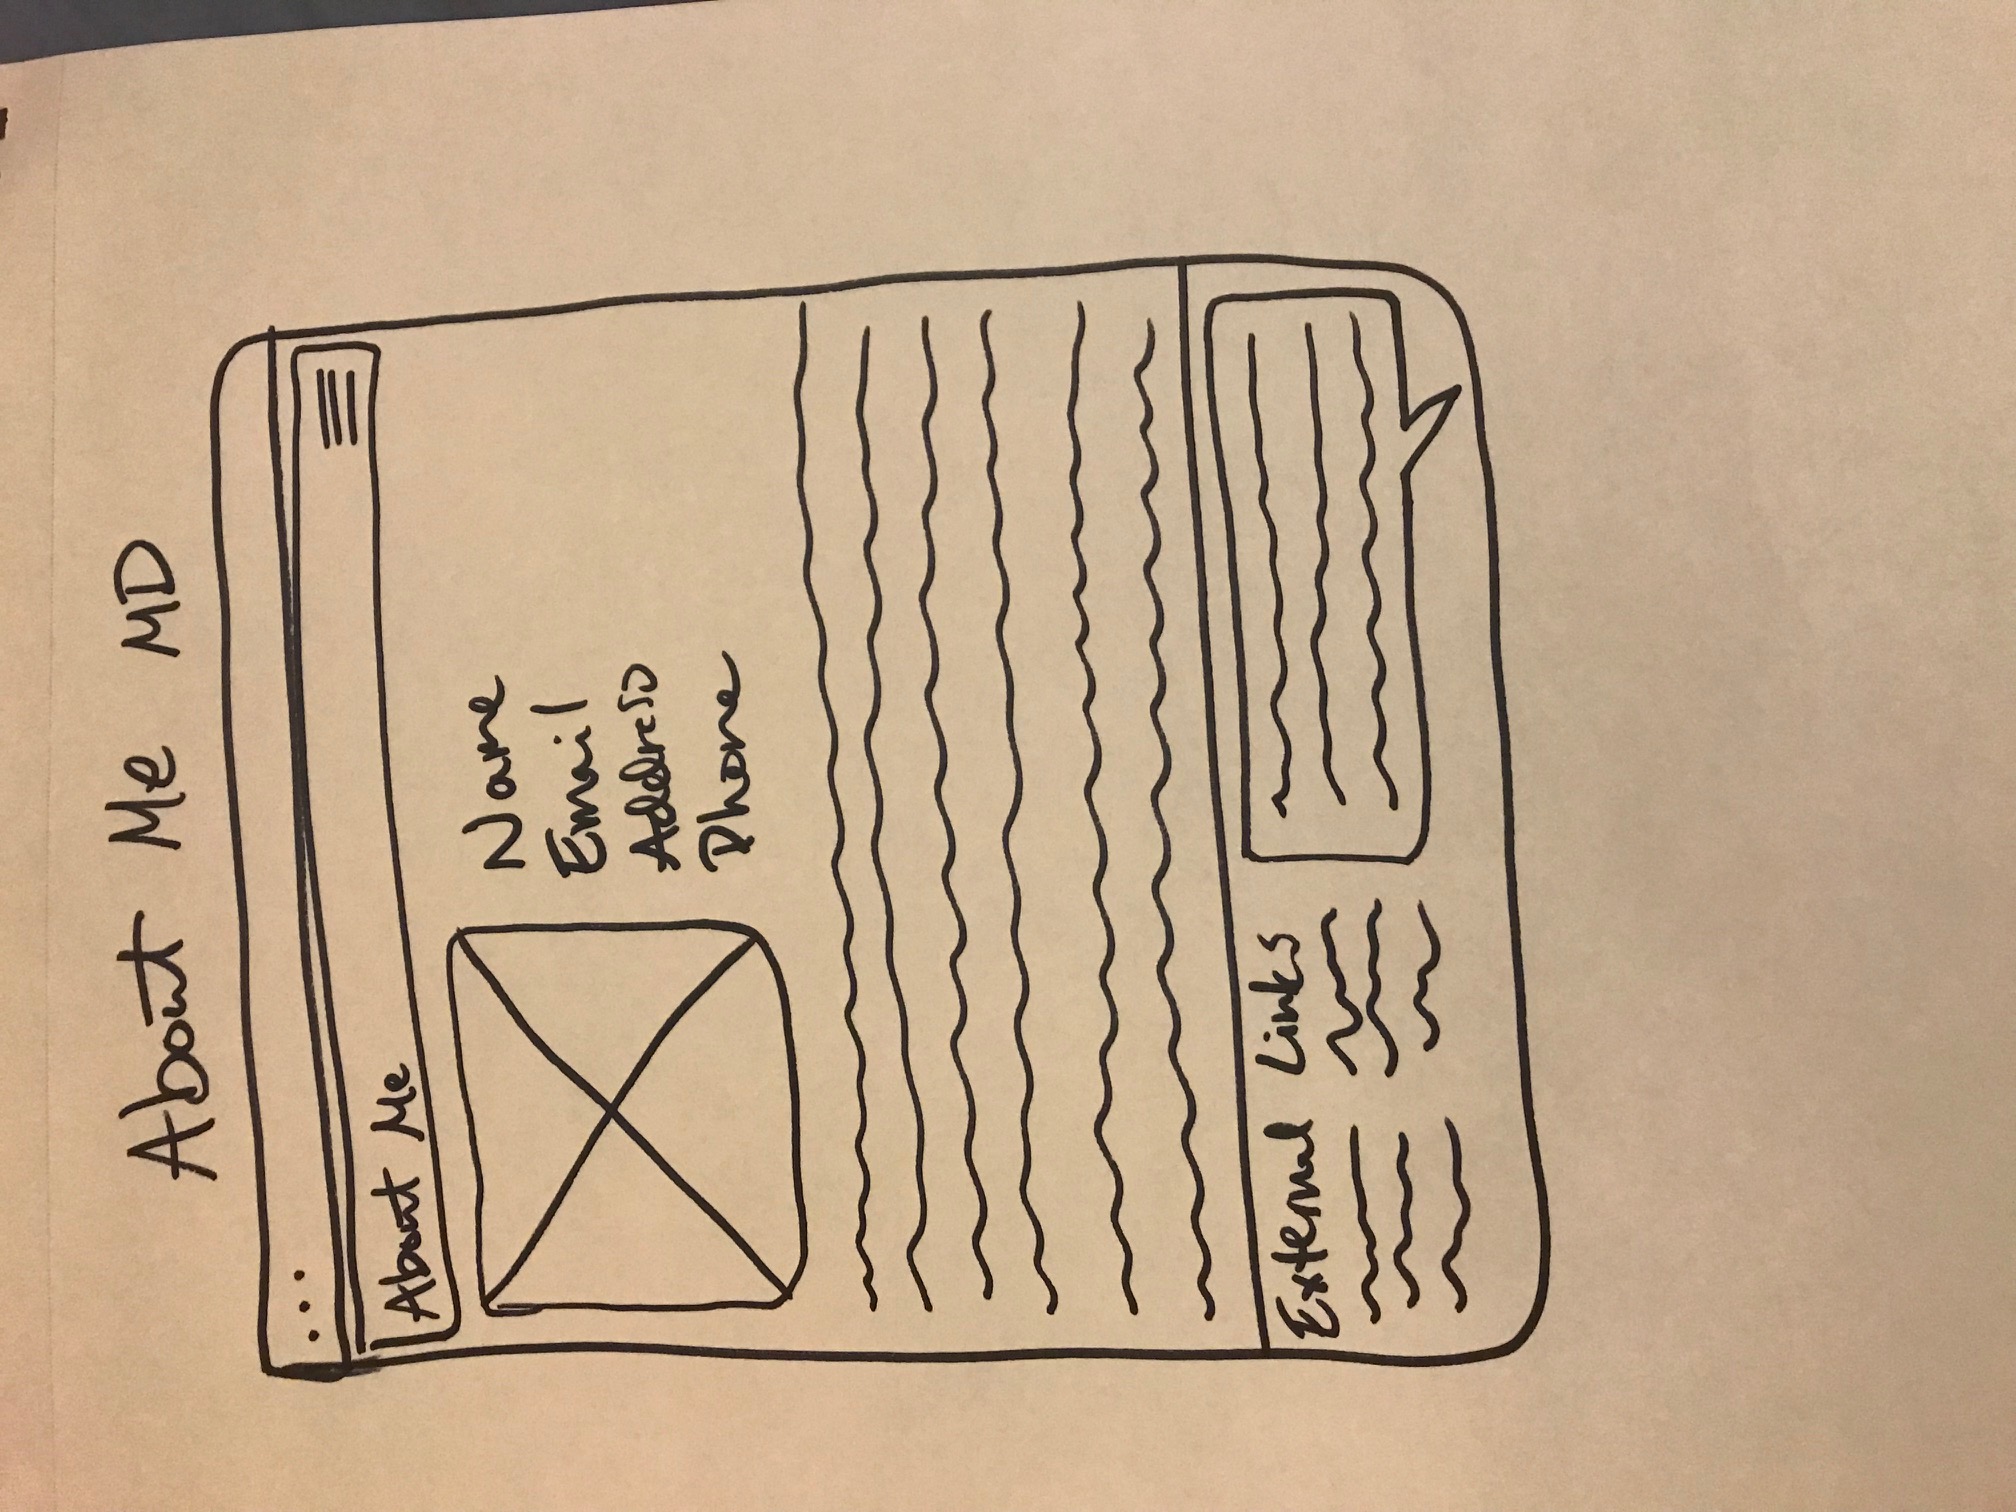 About Me MD
About Me
Name
Email
Address
Phone
External Links